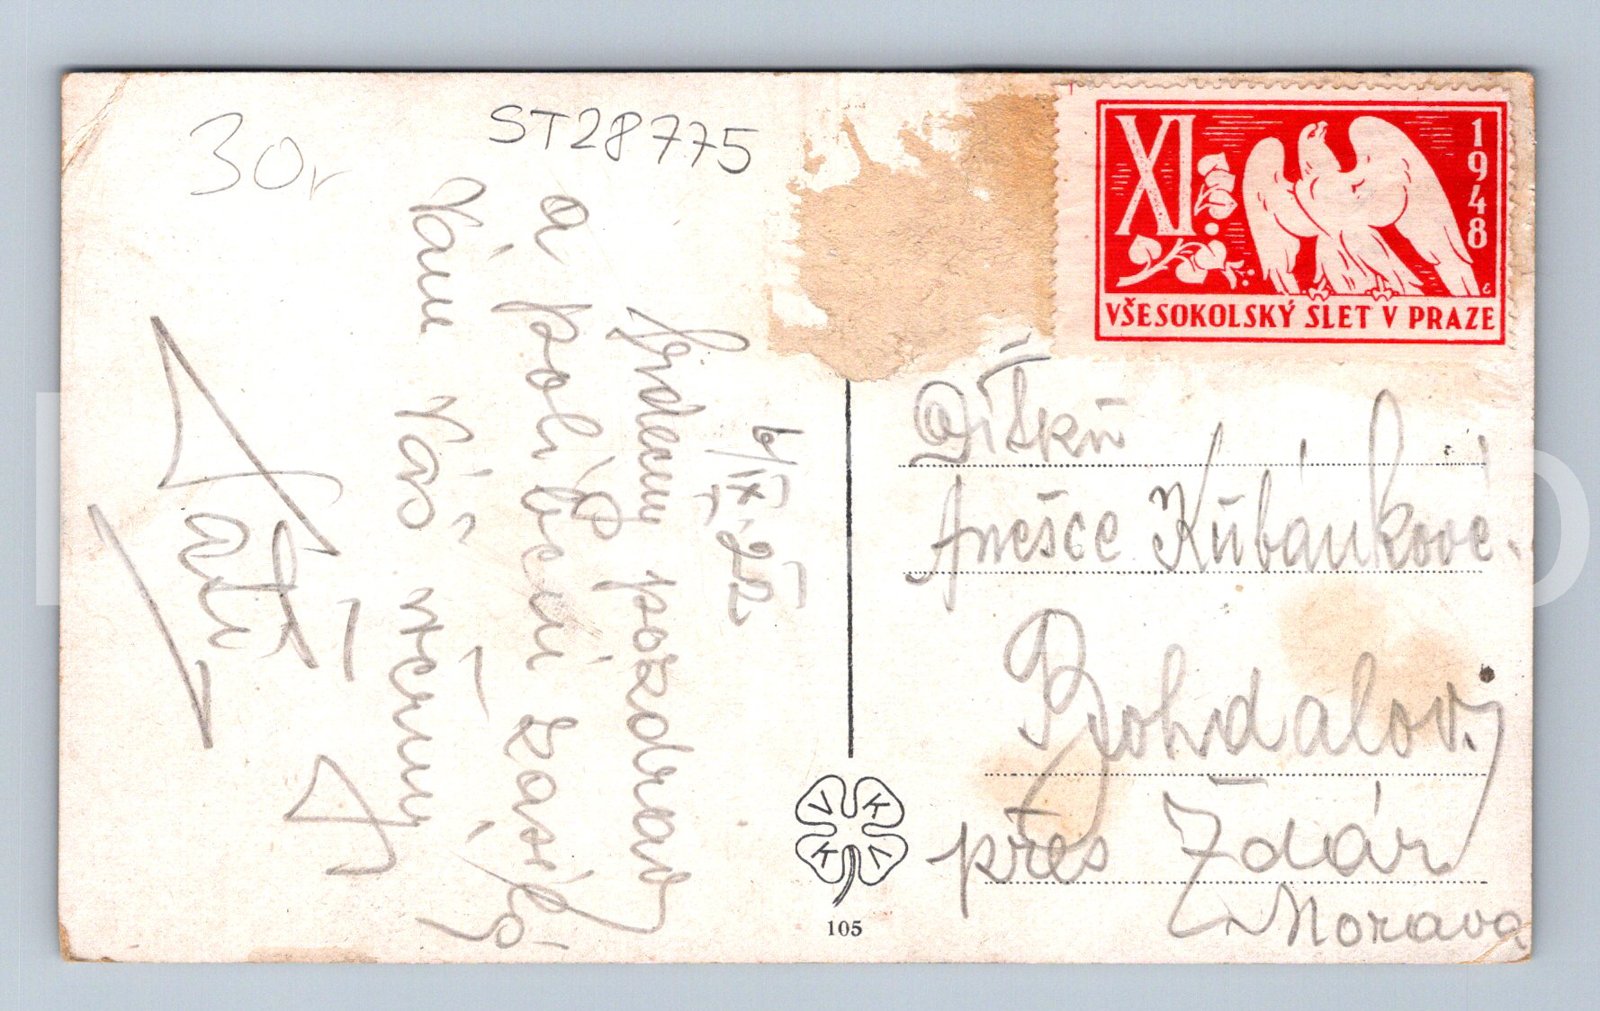 30,-
ST28775
XI.
1948
VŠESOKOLSKÝ SLET V PRAZE
6/IX. 25
Srdečný pozdrav
a políbení zasílá
Vám Váš věrný
Dítků
Anešce Kubánkové.
Bohdalov.
přes Zdár
Morava
V K V K
105